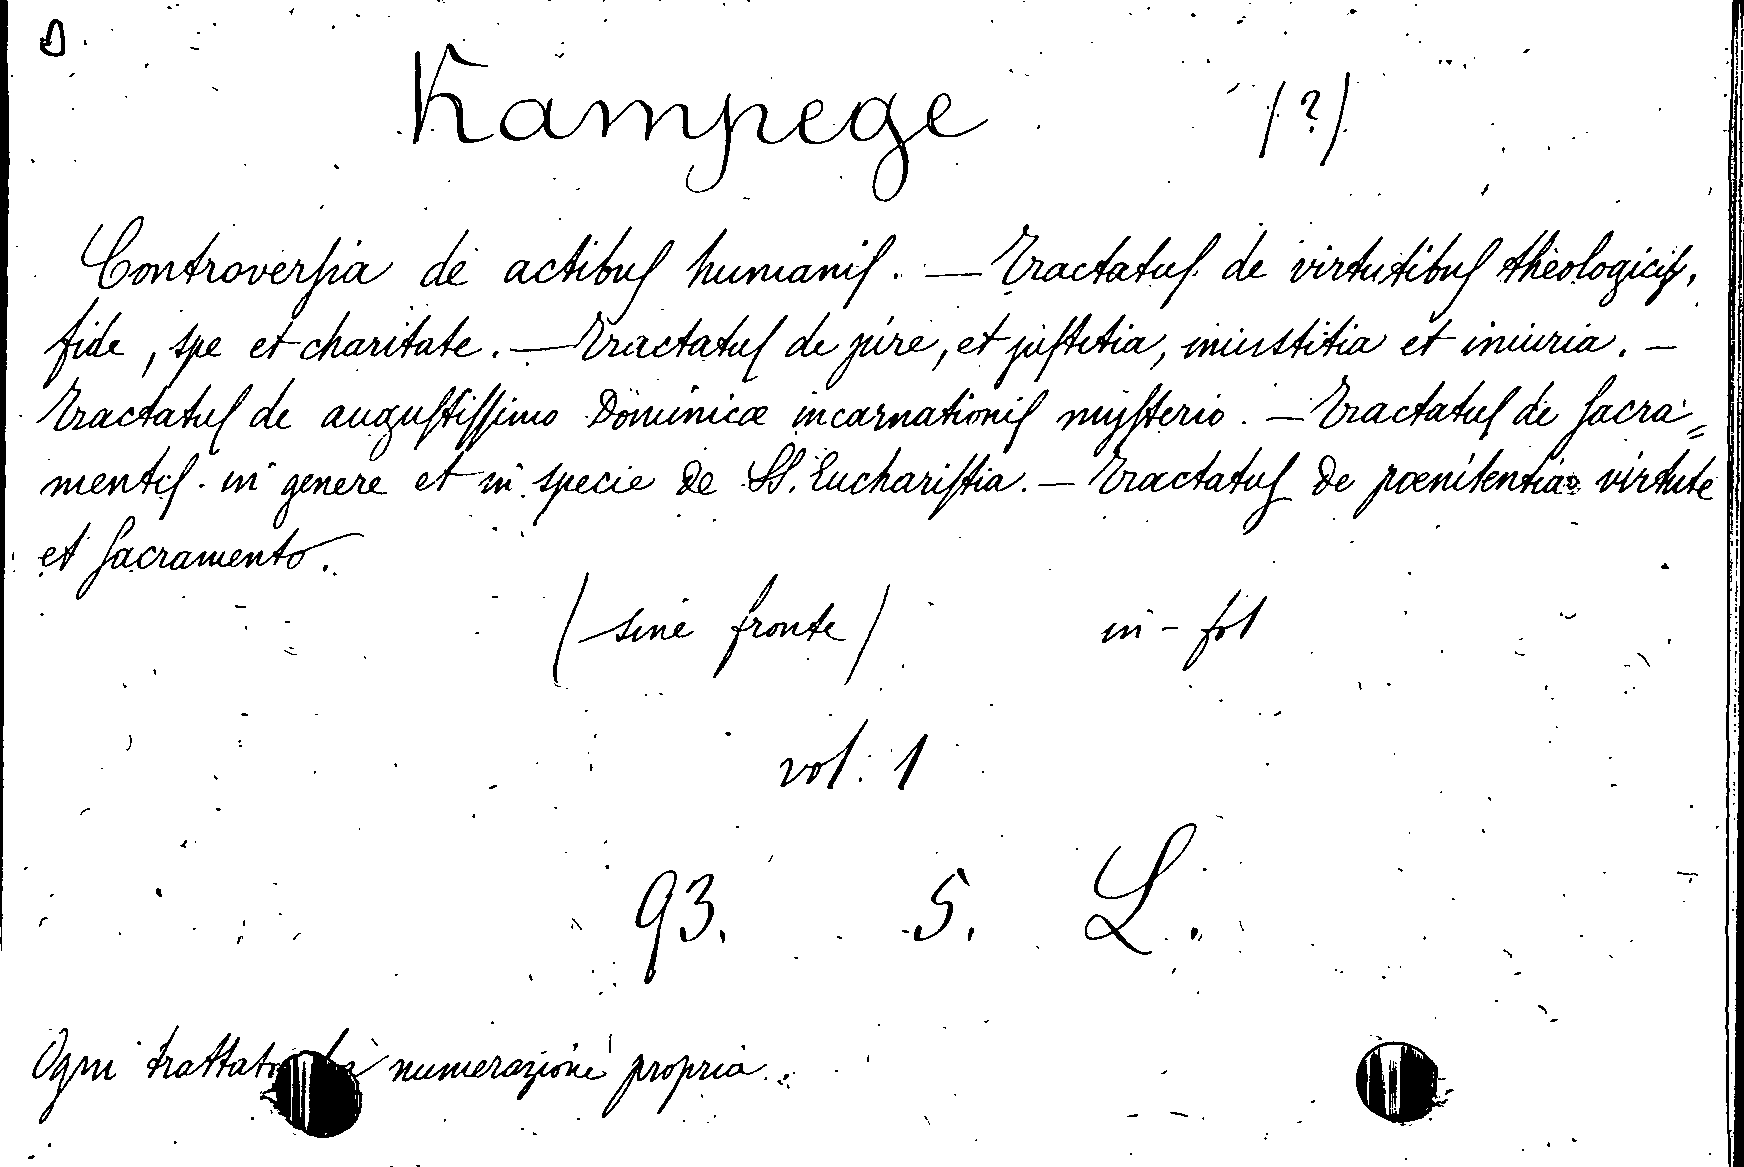 D.
Kampege (?)
Controversia de actibus humanis. — Tractatus de virtutibus theologicis,
fide, spe et charitate. — Tractatus de jure, et justitia, iniustitia et iniuria. —
Tractatus de augustissimo Dominicæ incarnationis mysterio. — Tractatus de sacra=
mentis in genere et in specie de SS. Eucharistia. — Tractatus de pœnitentia virtute
et sacramento.
(sine fronte) in-fol
vol. 1
93. 5. L.
Ogni trattato ha numerazione propria.